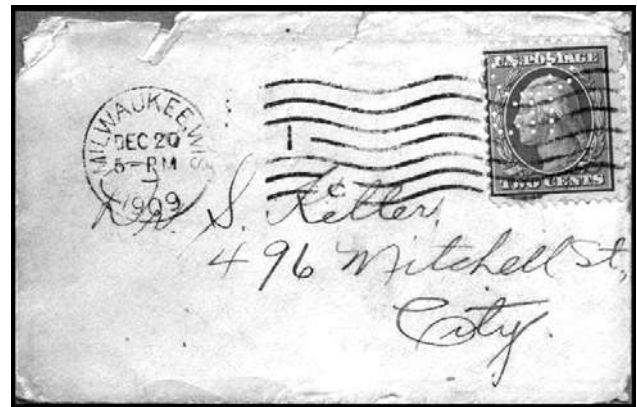 MILWAUKEE, WIS.
DEC 20
5-PM
1909
1
U.S. POSTAGE
TWO CENTS
S.
496 Mitchell St,
City.